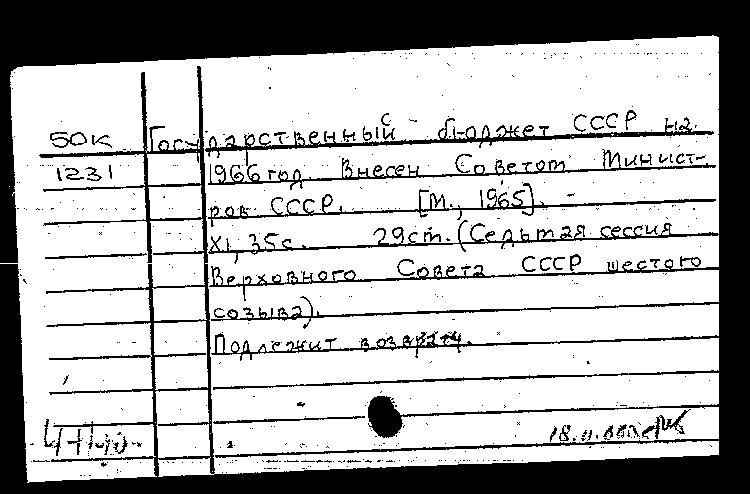 50к Государственный бюджет СССР на
1231 1966 год. Внесен Советом Минист-
ров СССР. [М., 1965]. -
XI, 35 с. 29 см. (Седьмая сессия
Верховного Совета СССР шестого
созыва).
Подлежит возврату.